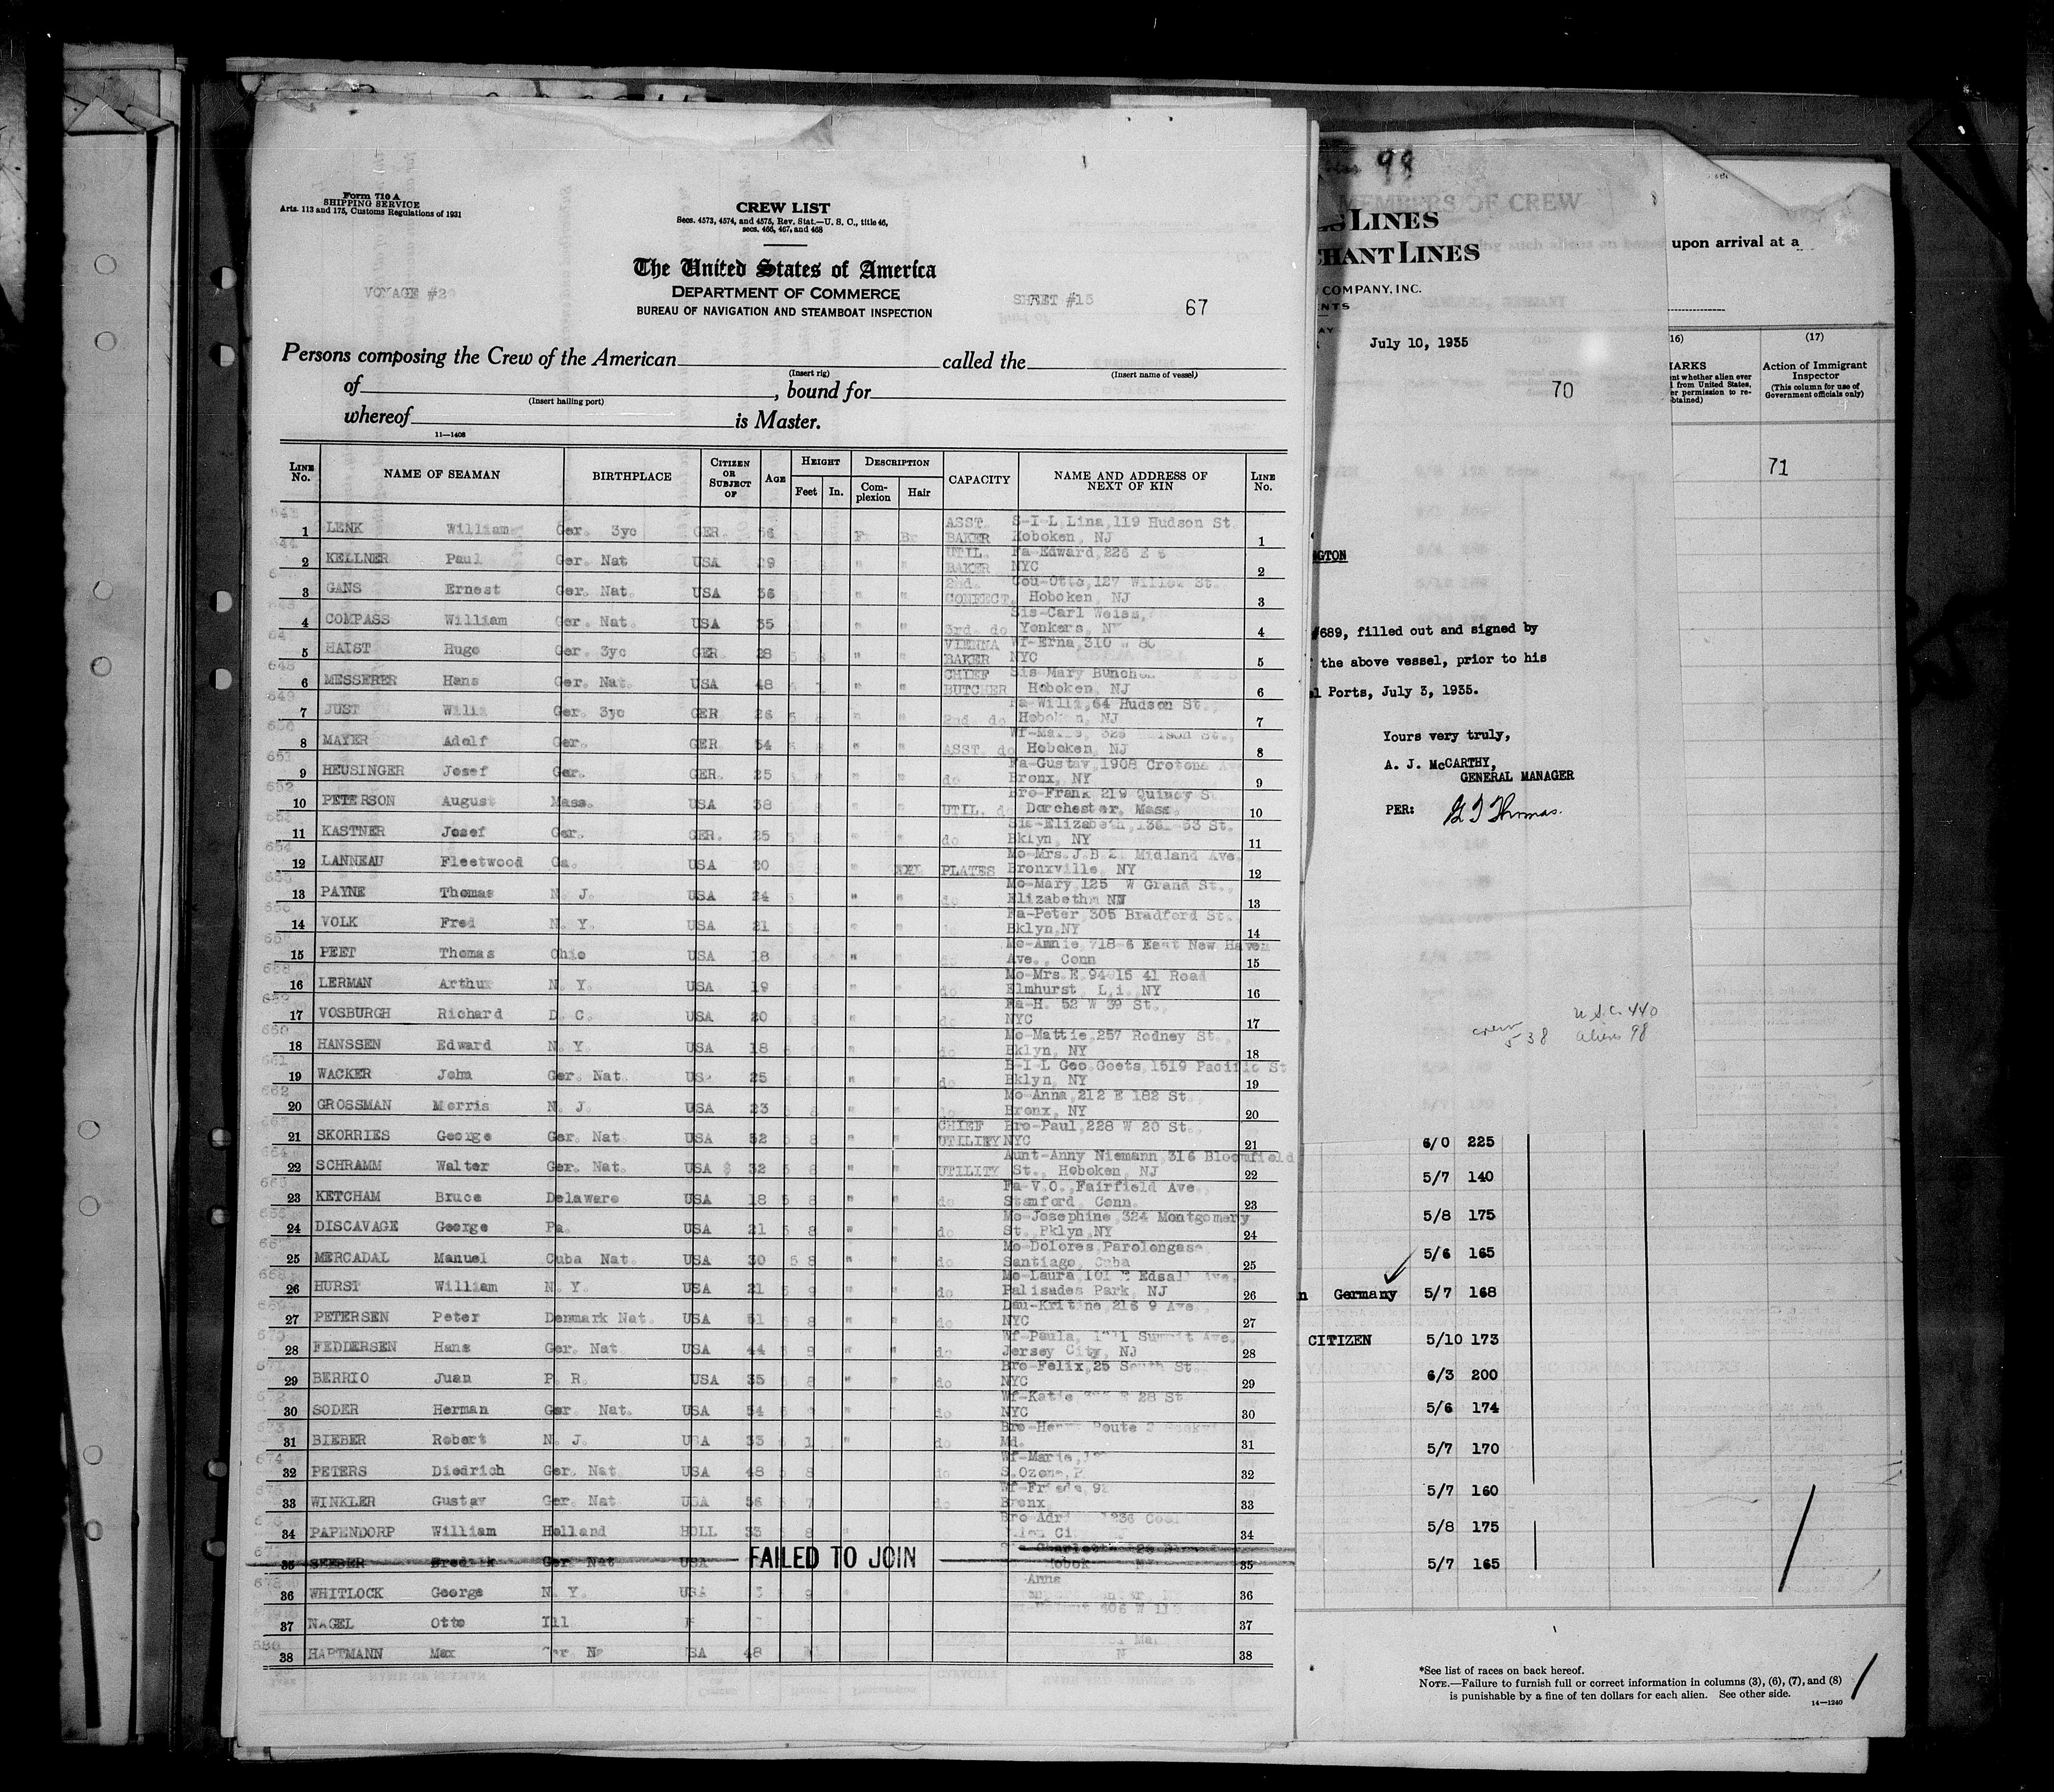 Form 710 A
SHIPPING SERVICE
Arts. 113 and 175, Customs Regulations of 1931
CREW LIST
Secs. 4573, 4574, and 4575, Rev. Stat.—U. S. C., title 46,
secs. 466, 467, and 468
The United States of America
DEPARTMENT OF COMMERCE
BUREAU OF NAVIGATION AND STEAMBOAT INSPECTION
VOYAGE #29
SHEET #15
67
Persons composing the Crew of the American called the
(Insert rig) (Insert name of vessel)
of , bound for
(Insert hailing port)
whereof is Master.
11—1408
LINE No. NAME OF SEAMAN BIRTHPLACE CITIZEN OR SUBJECT OF AGE HEIGHT Feet In. DESCRIPTION Complexion Hair CAPACITY NAME AND ADDRESS OF NEXT OF KIN LINE No.
1 LENK William Ger. 3yc GER. 56 ASST. BAKER S-I-L Lina, 119 Hudson St. Hoboken, NJ 1
2 KELLNER Paul Ger. Nat USA 29 " " UTIL. BAKER Fa-Edward, 226 E NYC 2
3 GANS Ernest Ger. Nat. USA 36 " " 2nd. CONFECT. Cou-Otto, 127 Willow St. Hoboken, NJ 3
4 COMPASS William Ger. Nat. USA 35 " " 3rd. do Sis-Carl Weiss, Yonkers, NY 4
5 HAIST Hugo Ger. 3yc GER 28 " " VIENNA BAKER Wf-Erna, 310 W 80 NYC 5
6 MESSERER Hans Ger. Nat. USA 48 " " CHIEF BUTCHER Sis-Mary Hoboken, NJ 6
7 JUST Willi Ger. 3yc GER 26 " " 2nd. do Fa-Willi, 64 Hudson St., Hoboken, NJ 7
8 MAYER Adolf Ger. GER. 54 " " ASST. do Hoboken, NJ 8
9 HEUSINGER Josef Ger. GER. 25 " " do Fa-Gustav, 1908 Crotona Ave Bronx, NY 9
10 PETERSON August Mass. USA 38 " " UTIL. do Bro-Frank 219 Quincy St. Dorchester, Mass. 10
11 KASTNER Josef Ger. GER. 25 " " do Sis-Elizabeth, Bklyn, NY 11
12 LANNEAU Fleetwood Ga. USA 20 " PLATES Mo-Mrs. J.B. Midland Ave. Bronxville, NY 12
13 PAYNE Thomas N. J. USA 24 " " do Mo-Mary, 125 W Grand St., Elizabeth, 13
14 VOLK Fred N. Y. USA 21 " " do Fa-Peter, 305 Bradford St. Bklyn, NY 14
15 PEET Thomas Ohio USA 18 " do Mo-Annie, East New Haven Ave., Conn 15
16 LERMAN Arthur N. Y. USA 19 " " do Mo-Mrs. E. 94-15 41 Road Elmhurst L.i. NY 16
17 VOSBURGH Richard D. C. USA 20 " " do Fa-H. 52 W 39 St., NYC 17
18 HANSSEN Edward N. Y. USA 18 " " do Mo-Mattie, 257 Rodney St., Bklyn, NY 18
19 WACKER John Ger. Nat. USA 25 " " do B-I-L Geo. Goets, 1519 Pacific St Bklyn, NY 19
20 GROSSMAN Morris N. J. USA 23 " " do Mo-Anna, 212 E 182 St., Bronx, NY 20
21 SKORRIES George Ger. Nat USA 52 5 8 " " CHIEF UTILITY Bro-Paul, 228 W 20 St., NYC 21
22 SCHRAMM Walter Ger. Nat. USA 32 5 8 " " UTILITY Aunt-Anny Niemann, 316 Bloomfield St., Hoboken, NJ 22
23 KETCHAM Bruce Delaware USA 18 5 8 " " do Fa-V.O., Fairfield Ave., Stamford, Conn. 23
24 DISCAVAGE George Pa. USA 21 5 8 " " do Mo-Josephine, 324 Montgomery St., Bklyn, NY 24
25 MERCADAL Manuel Cuba Nat. USA 30 5 8 " " do Mo-Dolores, Santiago, Cuba 25
26 HURST William N. Y. USA 21 5 9 " " do Mo-Laura, 101 E Edsall Ave. Palisades Park, NJ 26
27 PETERSEN Peter Denmark Nat. USA 51 8 " " do 216 9 Ave. NYC 27
28 FEDDERSEN Hans Ger. Nat USA 44 9 " " do Wf-Paula, Summit Ave. Jersey City, NJ 28
29 BERRIO Juan P. R. USA 35 8 " " do Bro-Felix, 25 South St. NYC 29
30 SODER Herman Ger. Nat. USA 54 " " do Wf-Katie 28 St NYC 30
31 BIEBER Robert N. J. USA 33 1 " do Route Md. 31
32 PETERS Diedrich Ger. Nat USA 48 8 do Wf-Marie, S. Ozone, P 32
33 WINKLER Gustav Ger. Nat USA 56 7 do Wf-Frieda, Bronx, 33
34 PAPENDORP William Holland HOLL 33 8 34
35 Ger. Nat USA FAILED TO JOIN 35
36 WHITLOCK George N. Y. USA 9 Anna 36
37 NAGEL Otto Ill 406 W 37
38 HARTMANN Max USA 48 38
98
MEMBERS OF CREW
LINES
CHANT LINES
COMPANY, INC.
July 10, 1935
70
GTON
#689, filled out and signed by
the above vessel, prior to his
Ports, July 3, 1935.
Yours very truly,
A. J. McCARTHY,
GENERAL MANAGER
PER: G T Thomas.
crew 538
U.S.C. 440
aliens 98
upon arrival at a
(17)
Action of Immigrant
Inspector
(This column for use of
Government officials only)
71
6/0 225
5/7 140
5/8 175
5/6 165
Germany 5/7 168
CITIZEN 5/10 173
6/3 200
5/6 174
5/7 170
5/7 160
5/8 175
5/7 165
*See list of races on back hereof.
NOTE.—Failure to furnish full or correct information in columns (3), (6), (7), and (8)
is punishable by a fine of ten dollars for each alien. See other side.
14—1240